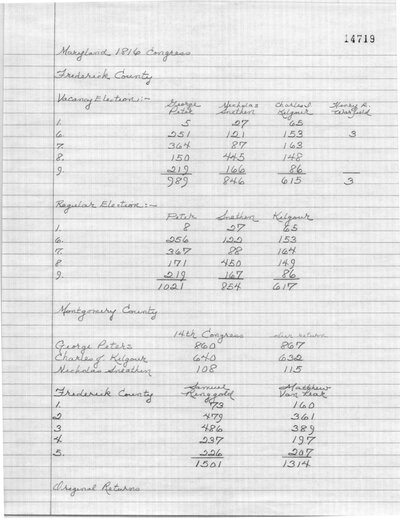 14719
Maryland 1816 Congress
Frederick County
Vacancy Election:-
George Peter Nicholas Snethen Charles J. Kilgour Henry R. Warfield
1. 5 27 65
6. 251 121 153 3
7. 364 87 163
8. 150 445 148
9. 219 166 86
989 846 615 3
Regular Election:-
Peter Snethen Kilgour
1. 8 27 65
6. 256 122 153
7. 367 88 164
8. 171 450 149
9. 219 167 86
1021 854 617
Montgomery County
14th Congress other return
George Peters 860 867
Charles J. Kilgour 640 632
Nicholas Sneathin 108 115
Frederick County Samuel Ringgold Matthew Van Lear
1. 73 160
2 479 361
3 486 389
4. 237 197
5. 226 207
1501 1314
Original Returns